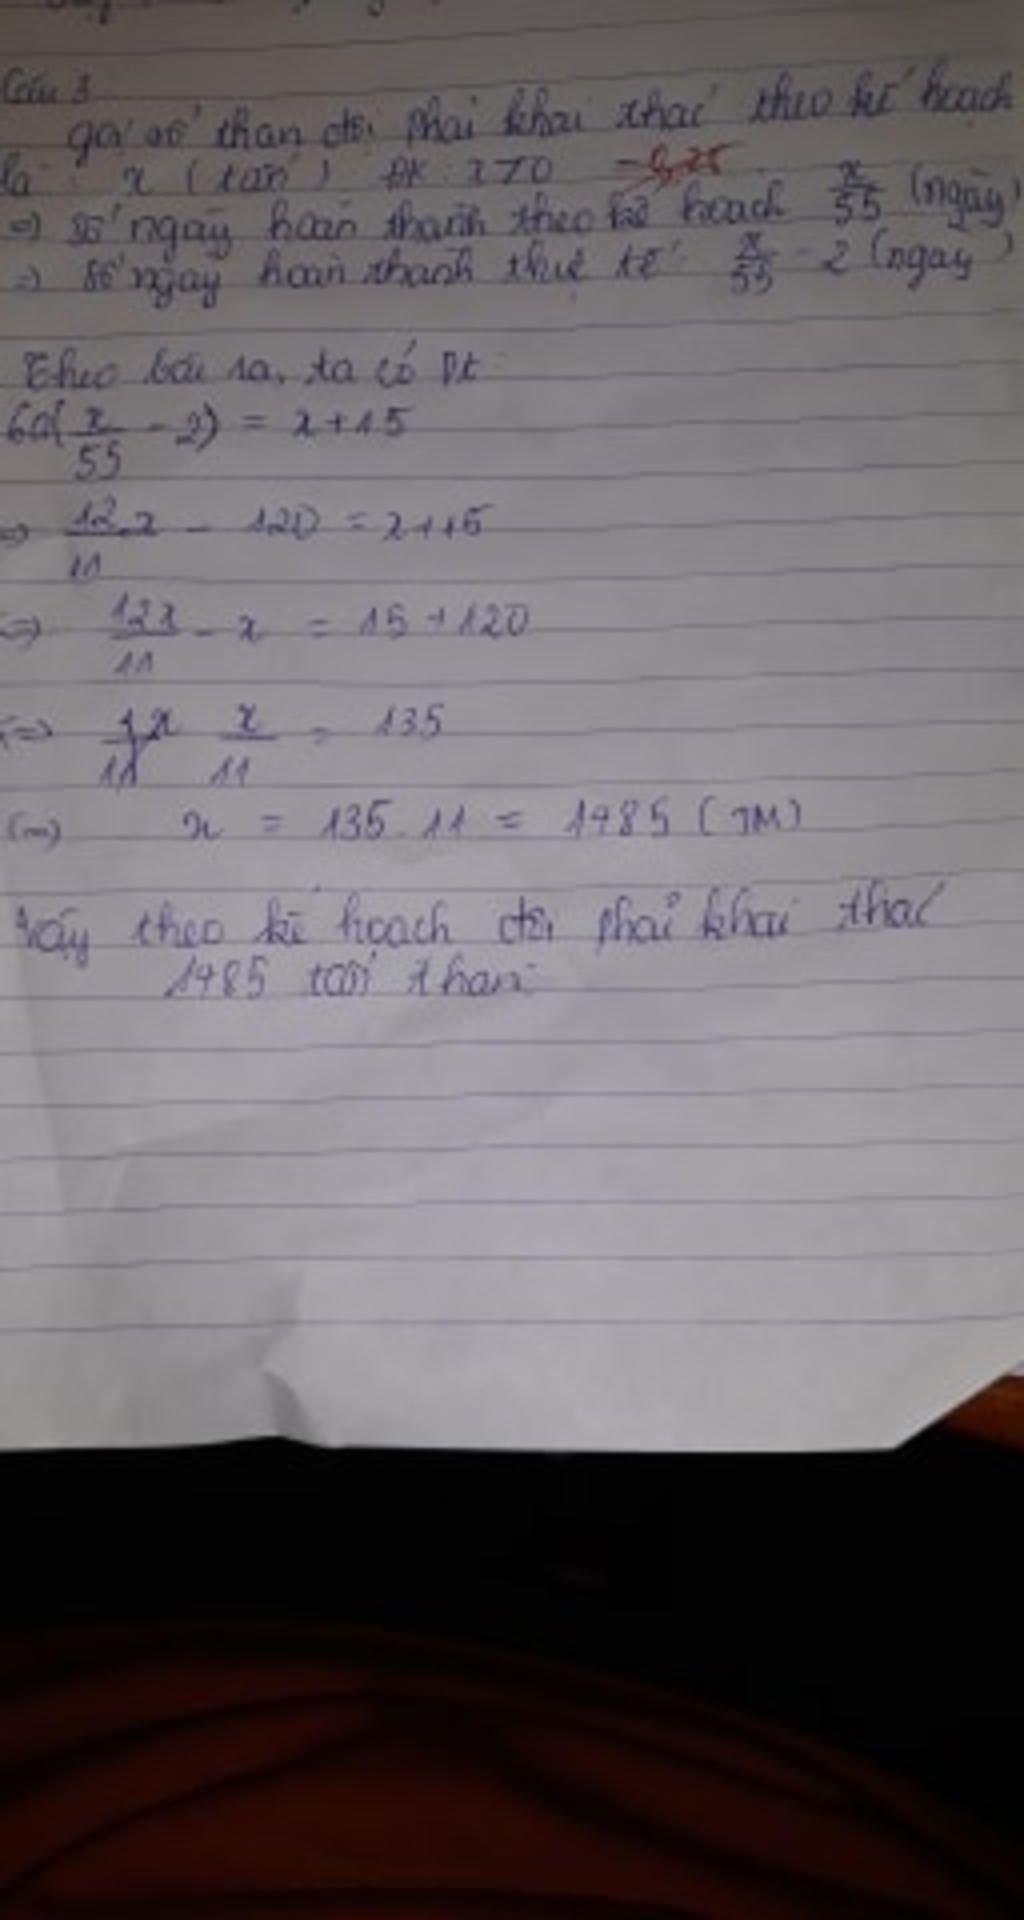 Câu 3
gọi số than đội phải khai thác theo kế hoạch
là: x (tấn) ĐK: x>0 -0,25
=> số ngày hoàn thành theo kế hoạch x/55 (ngày)
=> số ngày hoàn thành thực tế: x/55 - 2 (ngày)
Theo bài ra, ta có pt:
60(x/55 - 2) = x+15
=> 12x/11 - 120 = x+15
<=> 12x/11 - x = 15+120
<=> x/11 = 135
x = 135.11 = 1485 (TM)
Vậy theo kế hoạch đội phải khai thác
1485 tấn than.